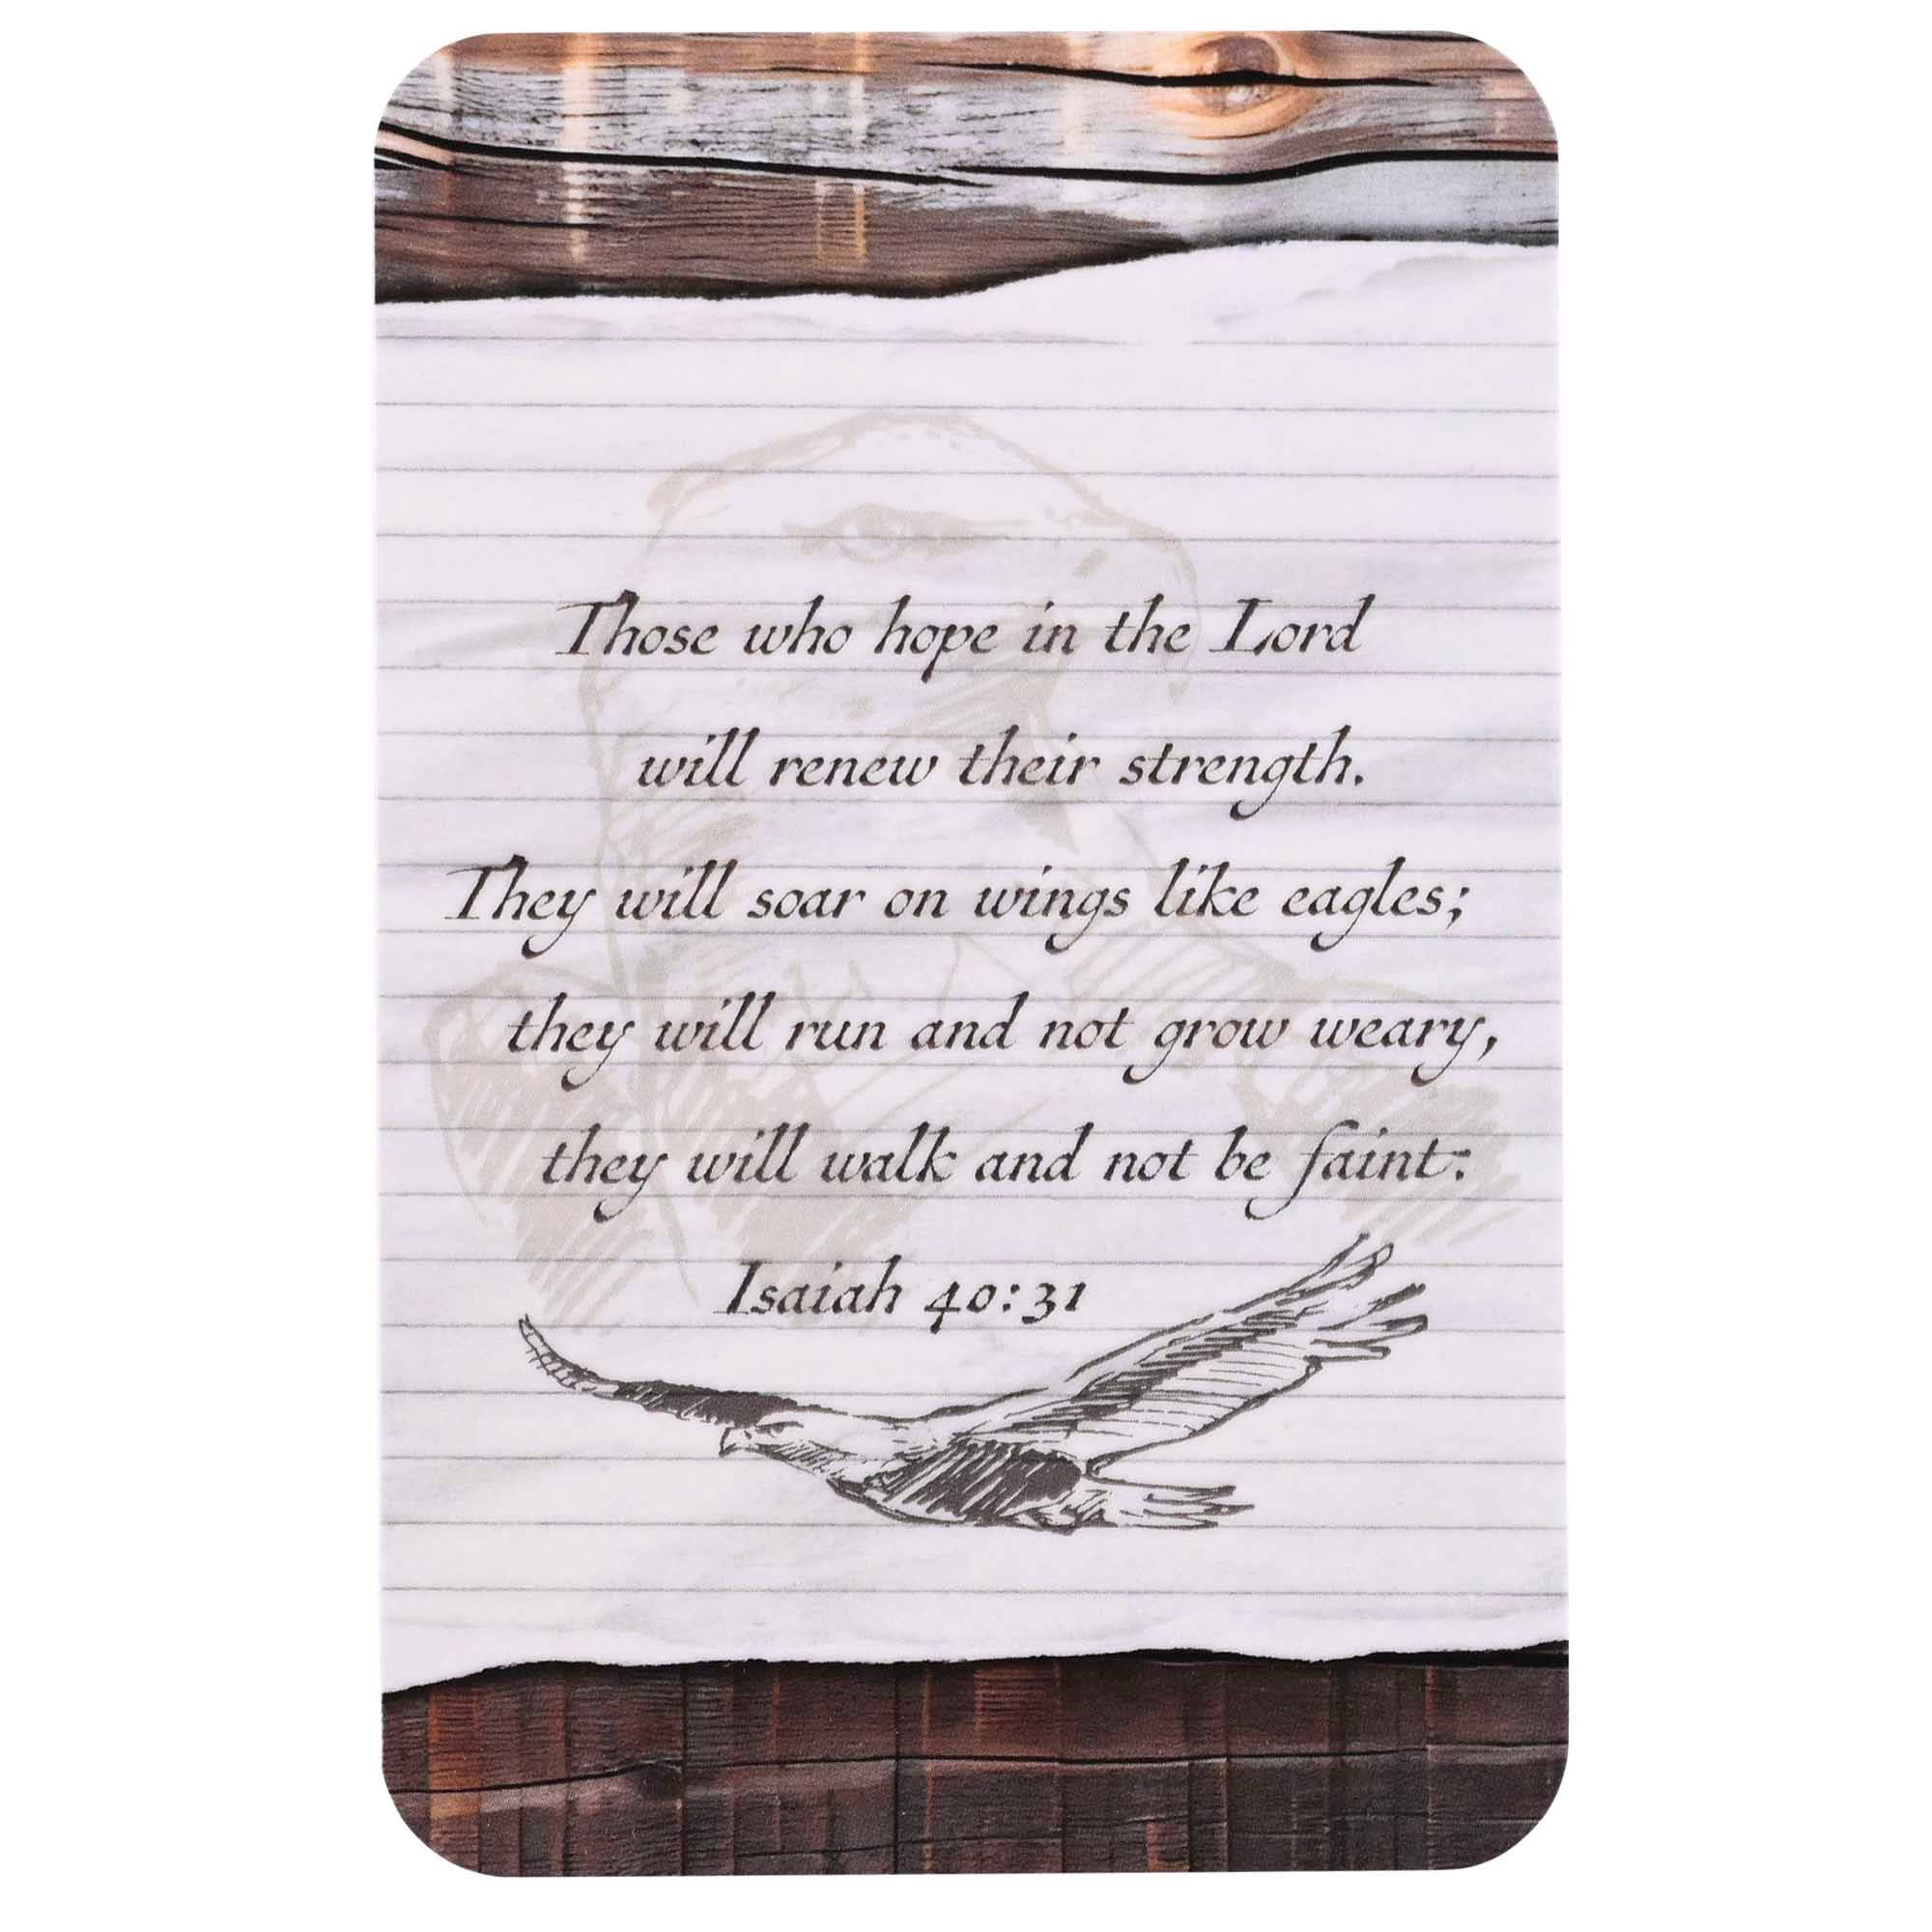 Those who hope in the Lord
will renew their strength.
They will soar on wings like eagles;
they will run and not grow weary,
they will walk and not be faint.
Isaiah 40:31